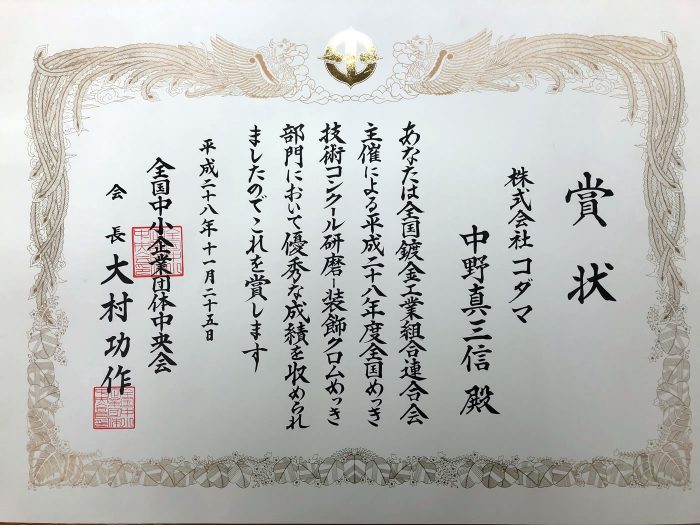 賞状
株式会社 コダマ
中野真三信 殿
あなたは全国鍍金工業組合連合会
主催による平成二十八年度全国めっき
技術コンクール研磨ー装飾クロムめっき
部門において優秀な成績を収められ
ましたのでこれを賞します
平成二十八年十一月二十五日
全国中小企業団体中央会
会長 大村功作